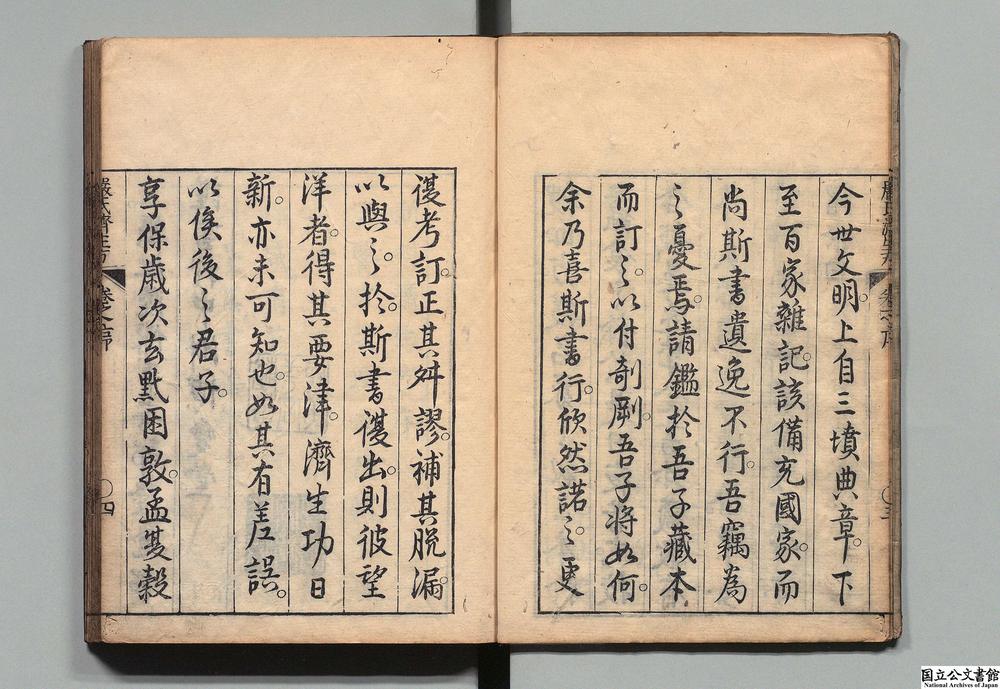 今世文明。上自三墳典章。下
至百家雜記。該備充國家。而
尚斯書遺逸不行。吾竊為
之憂焉。請鑑於吾子藏本
而訂之。以付剞劂。吾子將如何。
余乃喜斯書行。欣然諾之。更
復考訂。正其舛謬。補其脫漏。
以與之。於斯書復出。則彼望
洋者。得其要津。濟生功日
新。亦未可知也。如其有差誤。
以俟後之君子。
享保歲次玄黓困敦。孟夏穀
嚴氏濟生方 卷之序 〇四
国立公文書館
National Archives of Japan